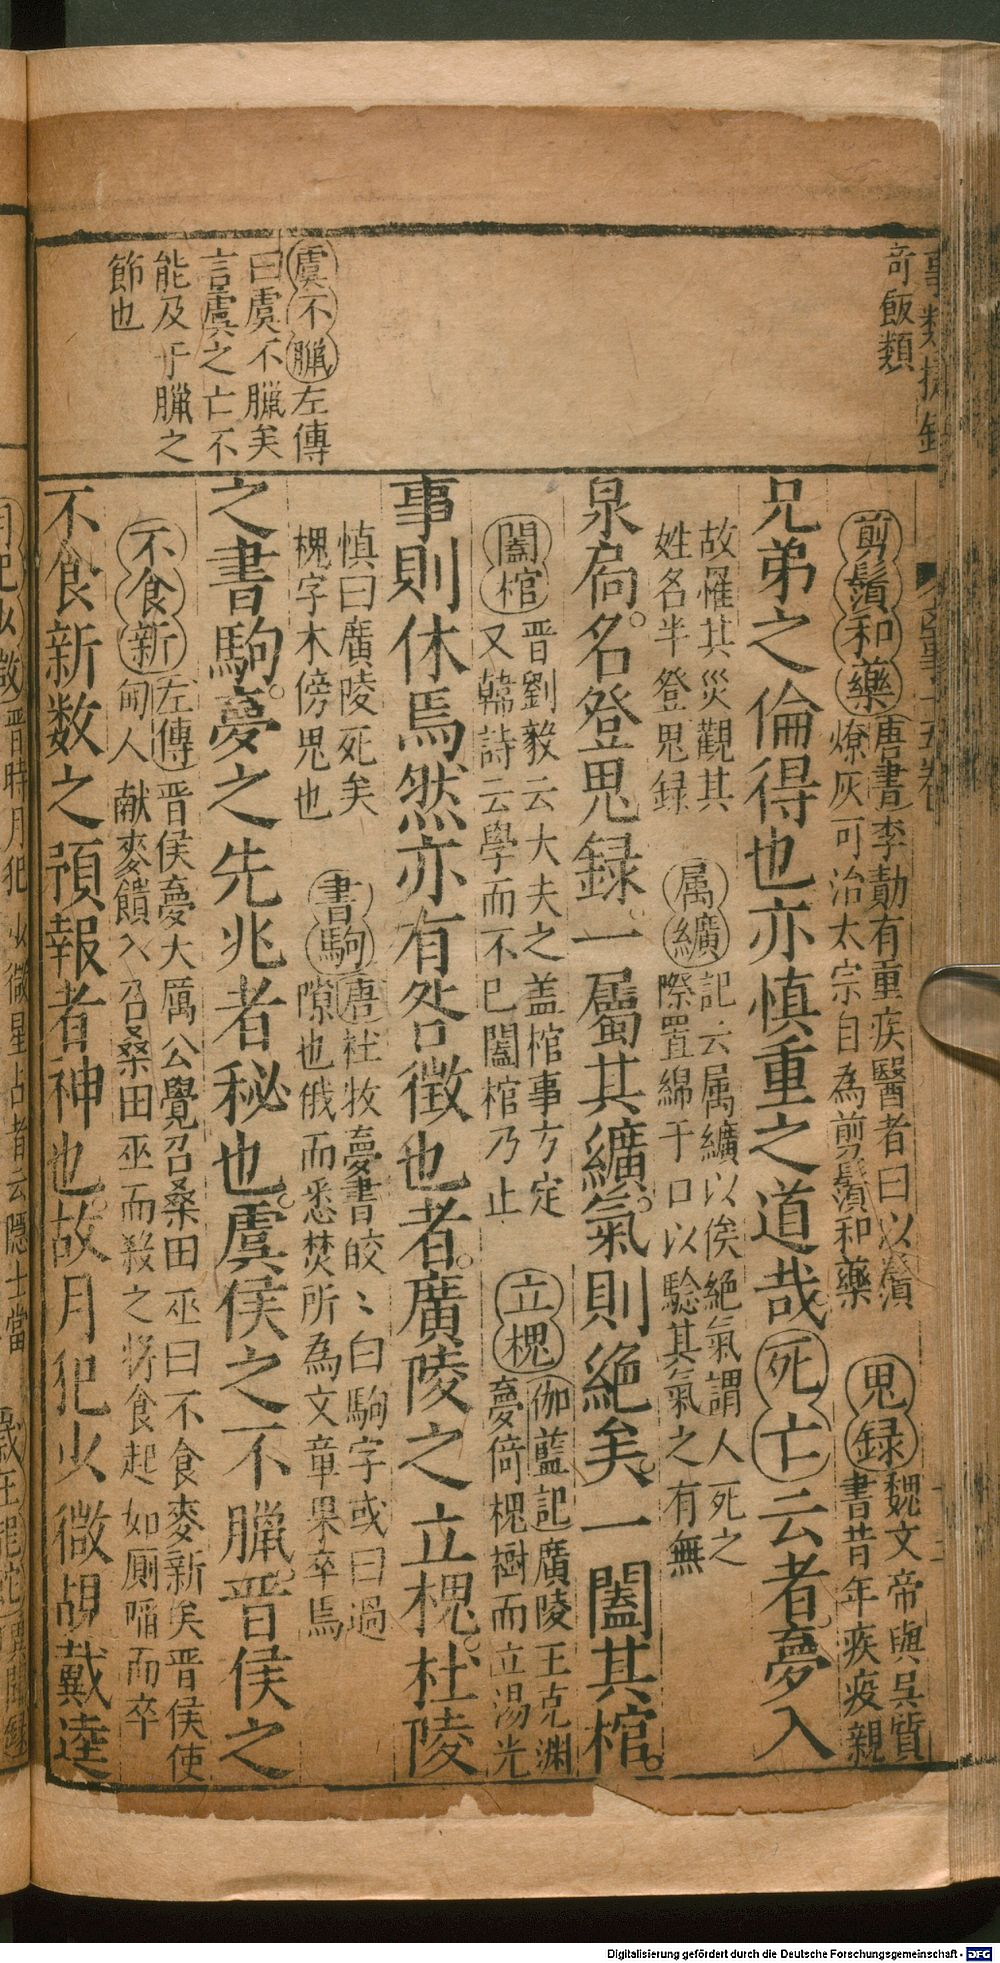 竒飯類
虞不臘左傳
曰虞不臘矣
言虞之亡不
能及于臘之
節也
剪鬚和藥唐書李勣有重疾醫者曰以鬚
燎灰可治太宗自為剪鬚和藥
鬼録魏文帝與吳質
書昔年疾疫親
兄弟之倫得也亦慎重之道哉死亡云者夢入
故罹其災觀其
姓名半登鬼録
属纊記云属纊以俟絶氣謂人死之
際置綿于口以驗其氣之有無
泉扃。名登鬼録。一屬其纊。氣則絶矣。一闔其棺。
闔棺晋劉毅云大夫之盖棺事方定
又韓詩云學而不已闔棺乃止
立槐伽藍記廣陵王克渊
夢倚槐樹而立湯光
事則休焉然亦有咎徴也者。廣陵之立槐。杜陵
慎曰廣陵死矣
槐字木傍鬼也
書駒唐杜牧夢書皎〻白駒字或曰過
隙也俄而悉焚所為文章果卒焉
之書駒。夢之先兆者秘也。虞侯之不臘。晋侯之
不食新左傳晋侯夢大厲公覺召桑田巫曰不食麥新矣晋侯使
甸人献麥饋入召桑田巫而殺之将食起如厠噎而卒
不食新数之預報者神也。故月犯少微覘戴逵